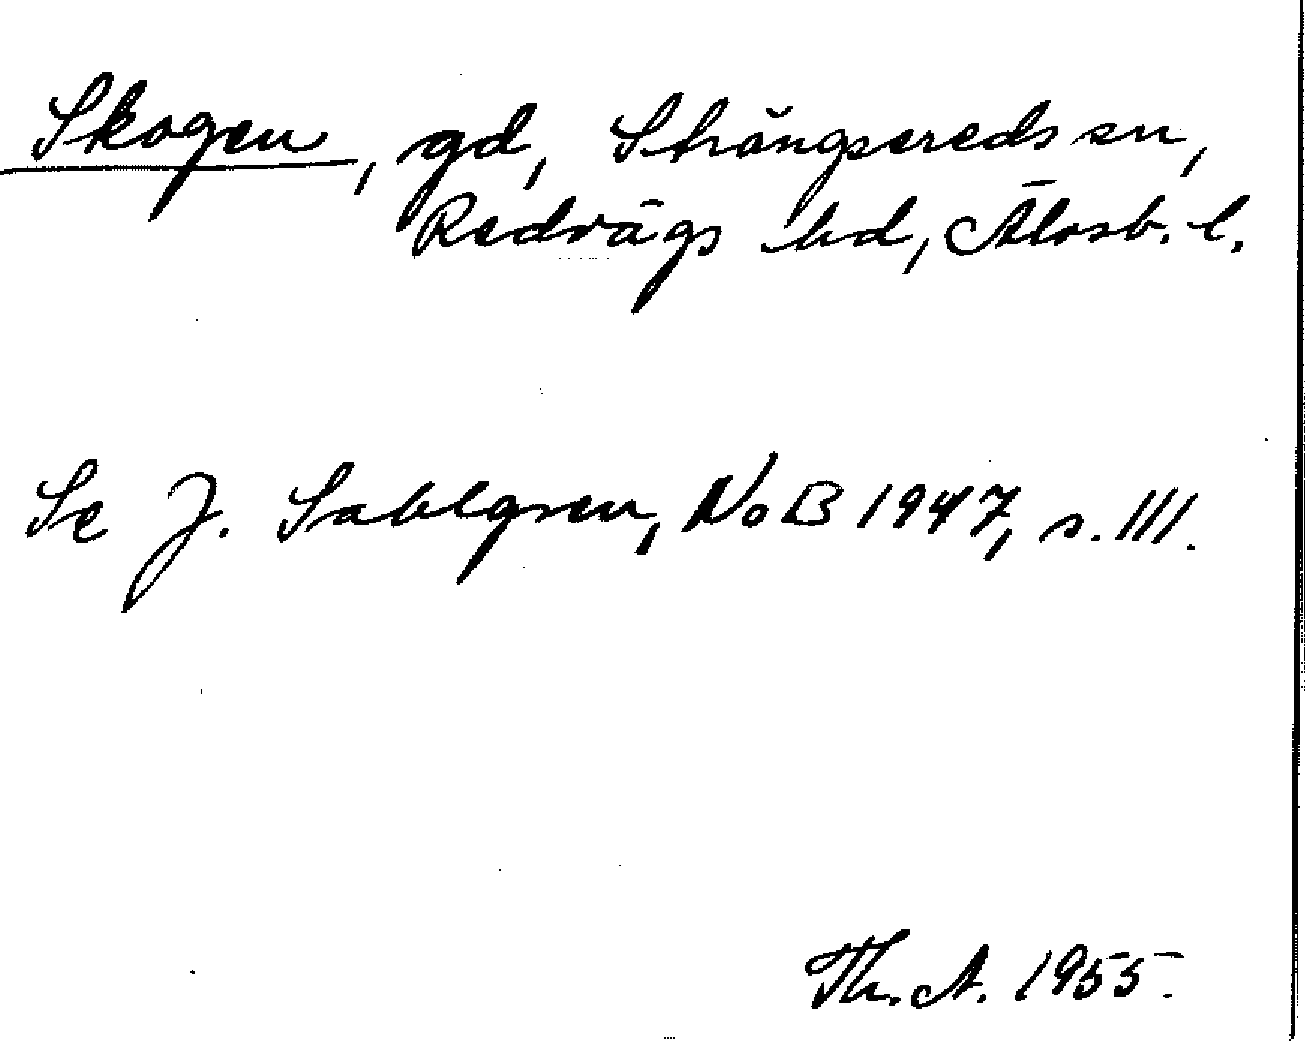 Skogen, gd, Strängsereds sn,
Redvägs hd, Älvsb. l.
Se J. Sahlgren, NoB 1947, s. 111.
Th. A. 1955.